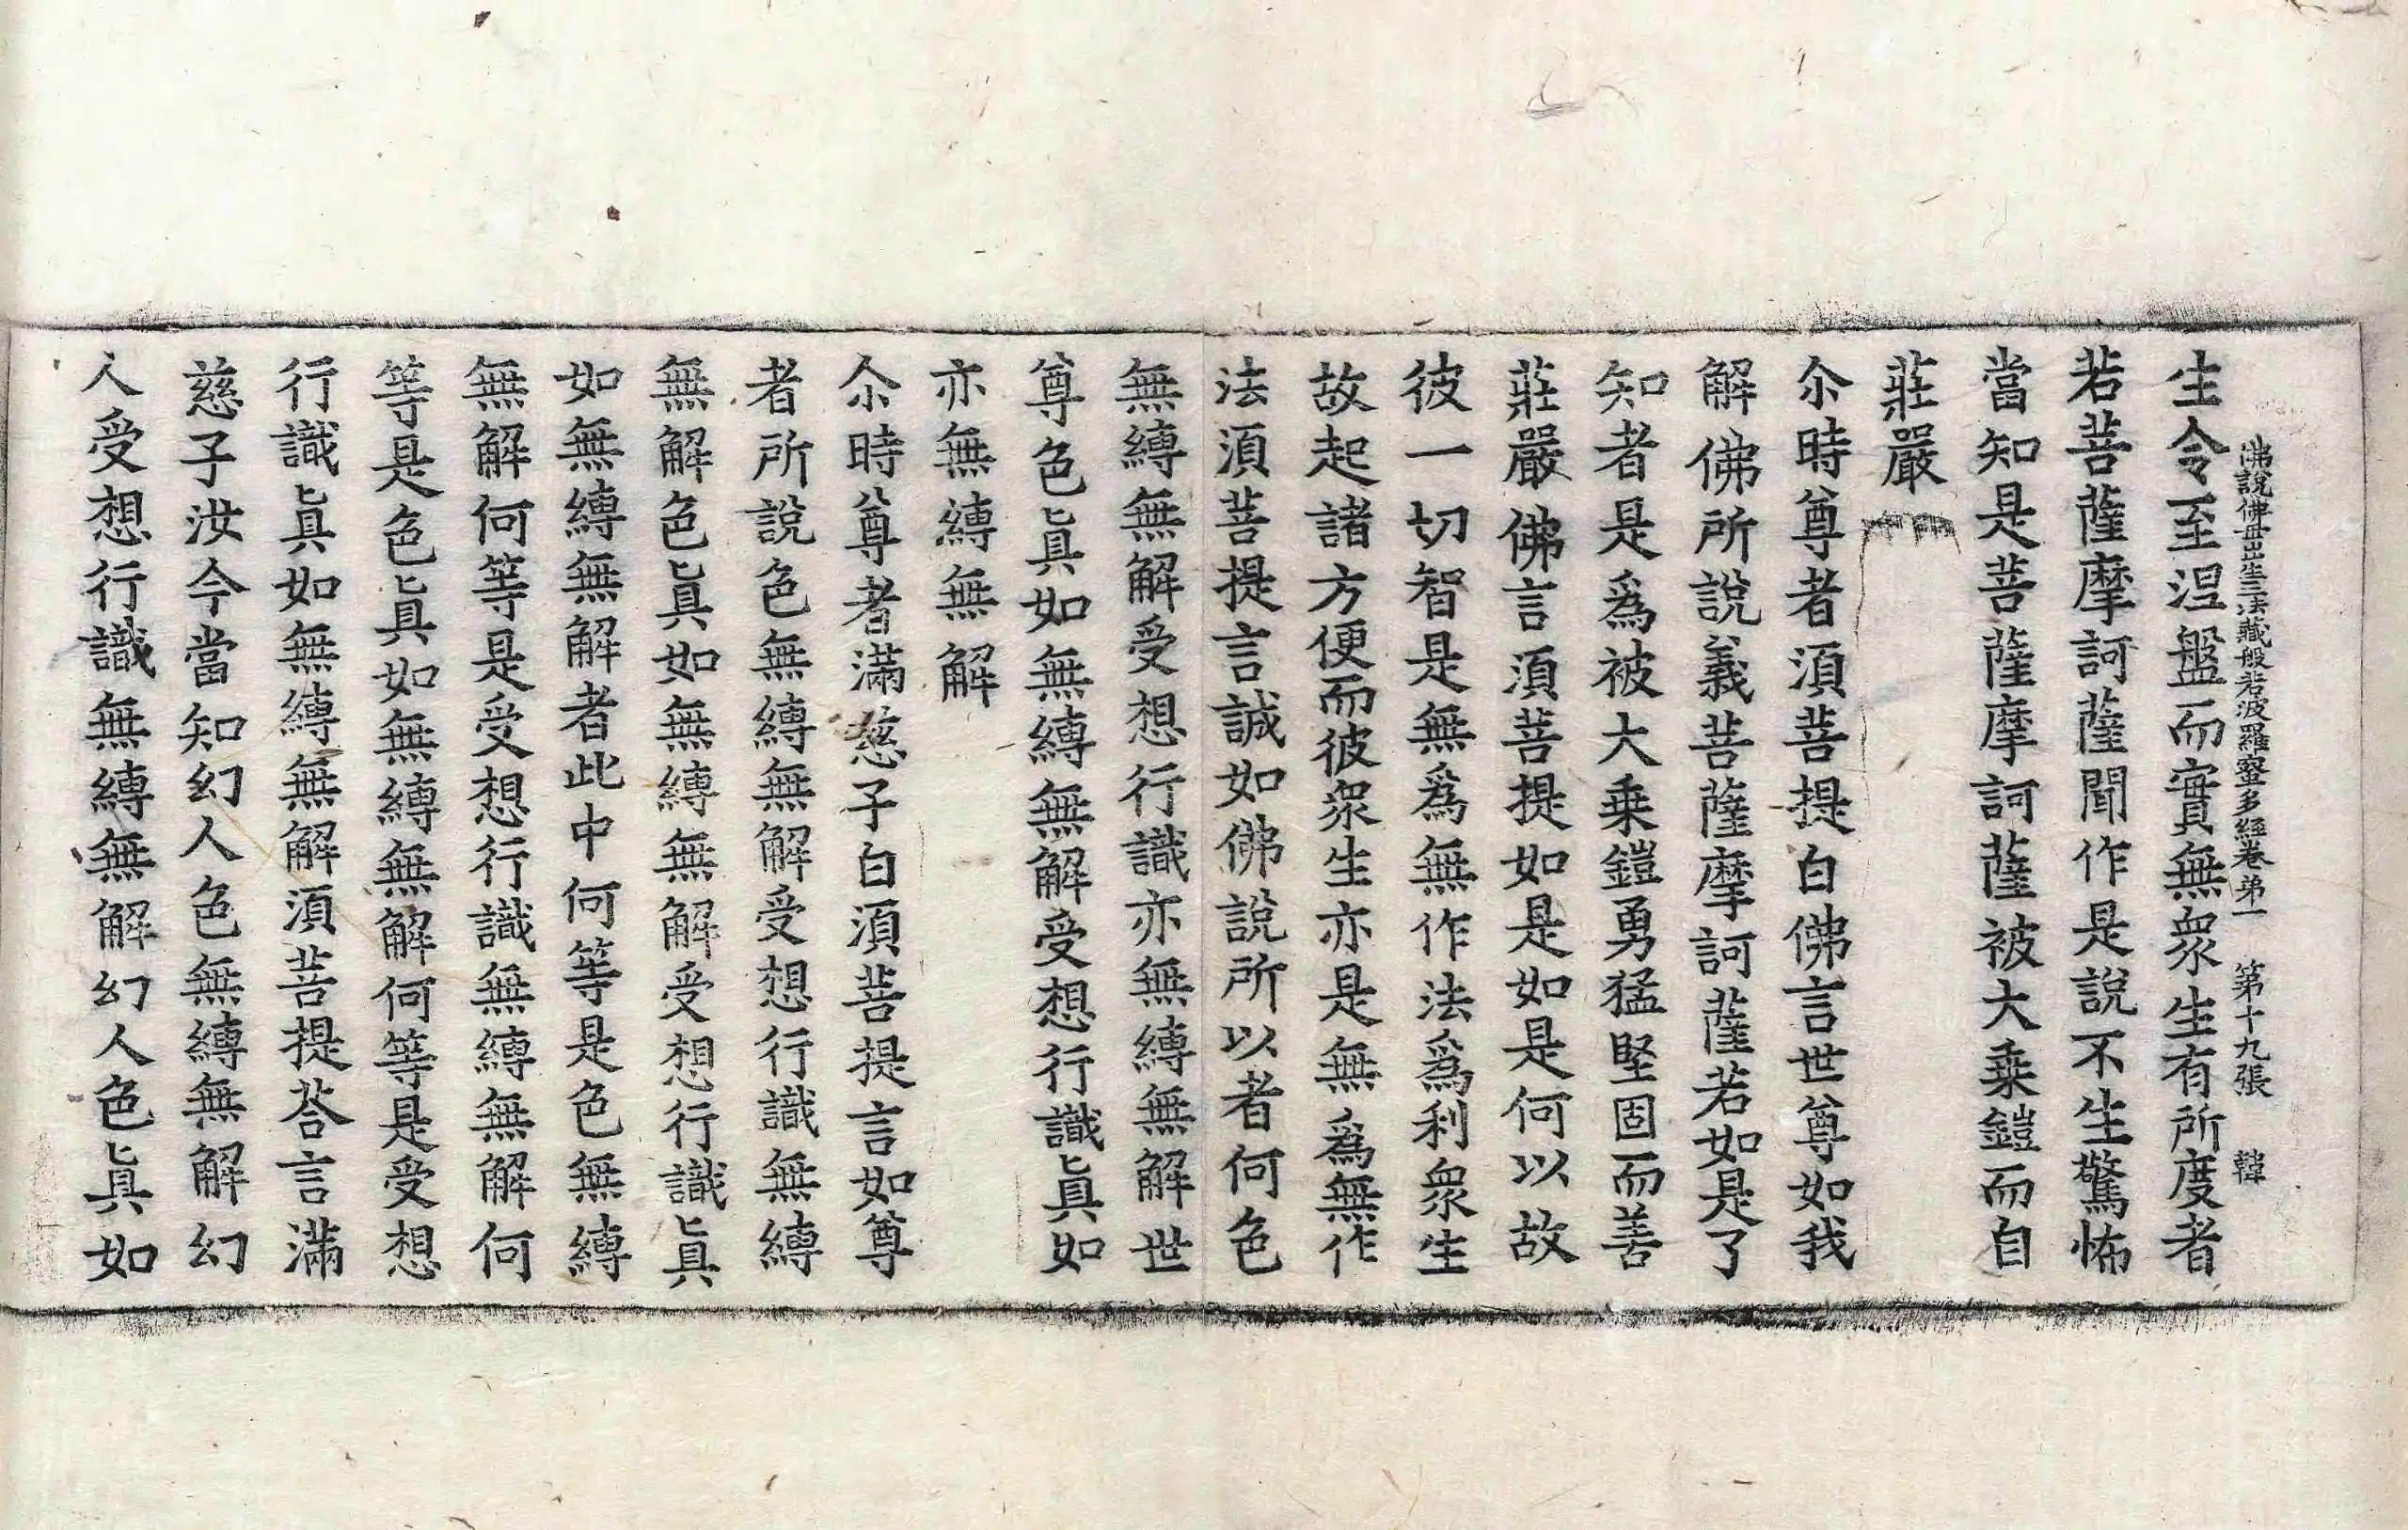 佛說佛毋出生三法藏般若波羅蜜多經卷弟一 第十九張 韓
生令至涅盤而實無衆生有所度者
若菩薩摩訶薩聞作是說不生驚怖
當知是菩薩摩訶薩被大乗鎧而自
莊嚴
尒時尊者湏菩提白佛言世尊如我
解佛所說義菩薩摩訶薩若如是了
知者是爲被大乗鎧勇猛堅固而善
莊嚴佛言湏菩提如是如是何以故
彼一切智是無爲無作法爲利衆生
故起諸方便而彼衆生亦是無爲無作
法湏菩提言誠如佛說所以者何色
無縛無解受想行識亦無縛無解世
尊色眞如無縛無解受想行識眞如
亦無縛無解
尒時尊者滿慈子白湏菩提言如尊
者所說色無縛無解受想行識無縛
無解色眞如無縛無解受想行識眞
如無縛無解者此中何等是色無縛
無解何等是受想行識無縛無解何
等是色眞如無縛無解何等是受想
行識眞如無縛無解湏菩提荅言滿
慈子汝今當知幻人色無縛無解幻
人受想行識無縛無解幻人色眞如